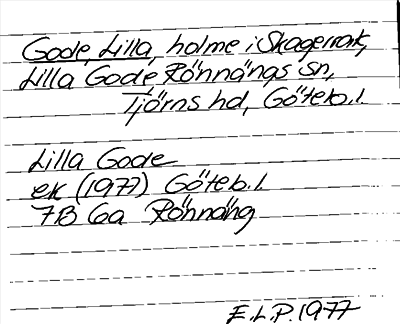 Gode, Lilla, holme i Skagerrak,
Lilla Gode Rönnängs sn,
Tjörns hd, Göteb.l.
Lilla Gode
ek (1977) Göteb.l.
7B 6a Rönnäng
E.L.P. 1977